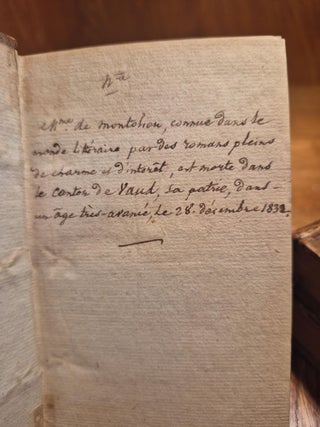 Nta
Mme. de montolieu, connue dans le
monde litéraire par des romans pleins
de charme et d'interêt, est morte dans
le canton de Vaud, sa patrie, dans
un age très-avancé, le 28. décembre 1832.